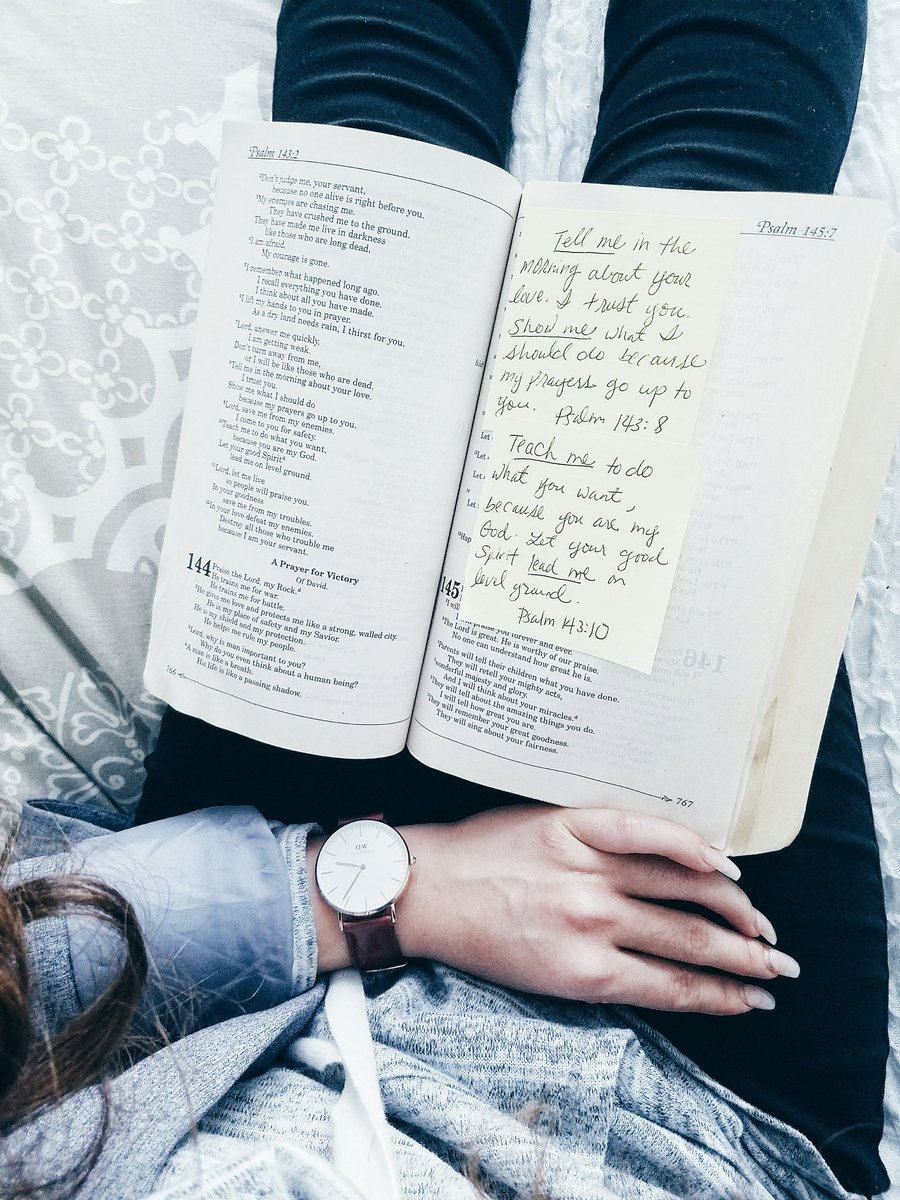 Psalm 143:2
²Don't judge me, your servant,
because no one alive is right before you.
³My enemies are chasing me.
They have crushed me to the ground.
They have made me live in darkness
like those who are long dead.
⁴I am afraid.
My courage is gone.
⁵I remember what happened long ago.
I recall everything you have done.
I think about all you have made.
⁶I lift my hands to you in prayer.
As a dry land needs rain, I thirst for you.
⁷Lord, answer me quickly.
I am getting weak.
Don't turn away from me,
or I will be like those who are dead.
⁸Tell me in the morning about your love.
I trust you.
Show me what I should do
because my prayers go up to you.
⁹Lord, save me from my enemies.
I come to you for safety.
¹⁰Teach me to do what you want,
because you are my God.
Let your good Spirit
lead me on level ground.
¹¹Lord, let me live
so people will praise you.
In your goodness
save me from my troubles.
¹²In your love defeat my enemies.
Destroy all those who trouble me
because I am your servant.
A Prayer for Victory
Of David.
144 Praise the Lord, my Rock.ᵈ
He trains me for war.
He trains me for battle.
²He gives me love and protects me like a strong, walled city.
He is my place of safety and my Savior.
He is my shield and my protection.
He helps me rule my people.
³Lord, why is man important to you?
Why do you even think about a human being?
⁴A man is like a breath.
His life is like a passing shadow.
766
Psalm 145:7
Tell me in the
morning about your
love. I trust you.
Show me what I
should do because
my prayers go up to
you. Psalm 143:8
Teach me to do
what you want,
because you are my
God. Let your good
Spirit lead me on
level ground.
Psalm 143:10
Let
Let
Let
145
I will
I will praise you forever and ever.
³The Lord is great. He is worthy of our praise.
No one can understand how great he is.
⁴Parents will tell their children what you have done.
They will retell your mighty acts,
⁵wonderful majesty and glory.
And I will think about your miracles.ᵈ
⁶They will tell about the amazing things you do.
I will tell how great you are.
⁷They will remember your great goodness.
They will sing about your fairness.
767